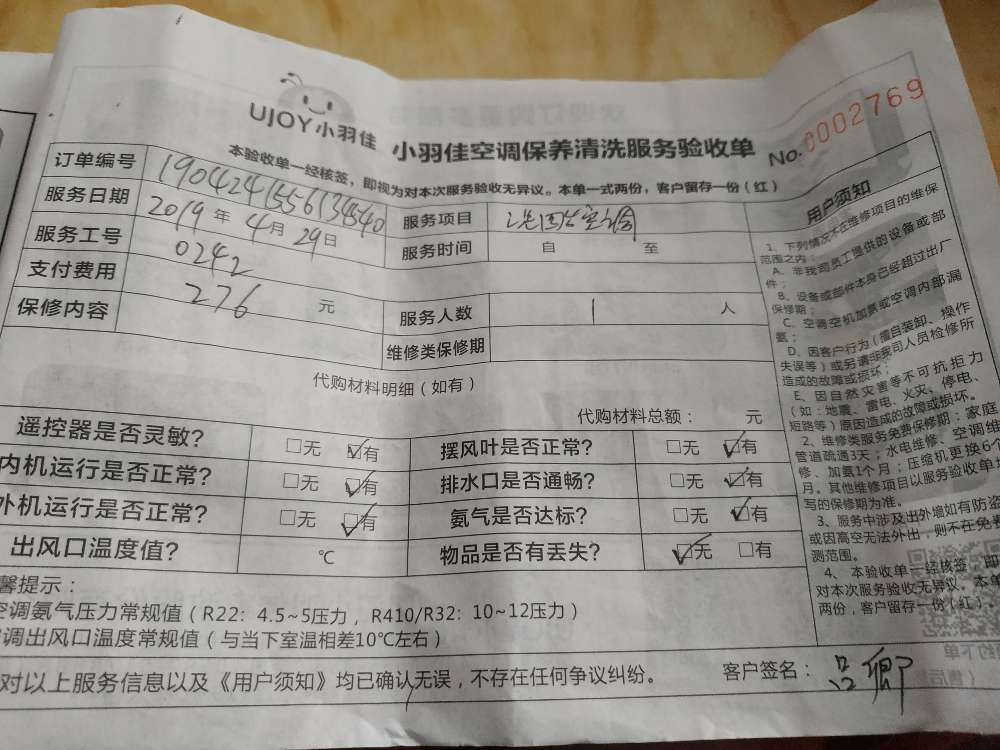 UJOY小羽佳
小羽佳空调保养清洗服务验收单
No. 0002769
本验收单一经核签，即视为对本次服务验收无异议。本单一式两份，客户留存一份（红）
订单编号
服务日期 2019年4月29日
服务项目
服务工号 0242
服务时间 自 至
支付费用 276 元
服务人数 1 人
保修内容
维修类保修期
代购材料明细（如有）
代购材料总额： 元
遥控器是否灵敏？ □无 ☑有
摆风叶是否正常？ □无 ☑有
内机运行是否正常？ □无 ☑有
排水口是否通畅？ □无 ☑有
外机运行是否正常？ □无 ☑有
氨气是否达标？ □无 ☑有
出风口温度值？ ℃
物品是否有丢失？ ☑无 □有
馨提示：
空调氨气压力常规值（R22：4.5~5压力，R410/R32：10~12压力）
调出风口温度常规值（与当下室温相差10℃左右）
对以上服务信息以及《用户须知》均已确认无误，不存在任何争议纠纷。
客户签名：
用户须知
1、下列情况不在维修项目的维保
范围之内：
A、非我司员工提供的设备或部
件；
B、设备或部件本身已经超过出厂
保修期；
C、空调空机加氨或空调内部漏
氨；
D、因客户行为（擅自装卸、操作
失误等）或另请非我司人员检修所
造成的故障或损坏；
E、因自然灾害等不可抗拒力
（如：地震、雷电、火灾、停电、
短路等）原因造成的故障或损坏。
2、维修类服务免费保修期：家庭
管道疏通3天；水电维修、空调维
修、加氨1个月；压缩机更换6个
月。其他维修项目以服务验收单填
写的保修期为准。
3、服务中涉及出外增如有防盗
或因高空无法外出，则不在免费
测范围。
4、本验收单一经核签，即
对本次服务验收无异议。本单
两份，客户留存一份（红）。